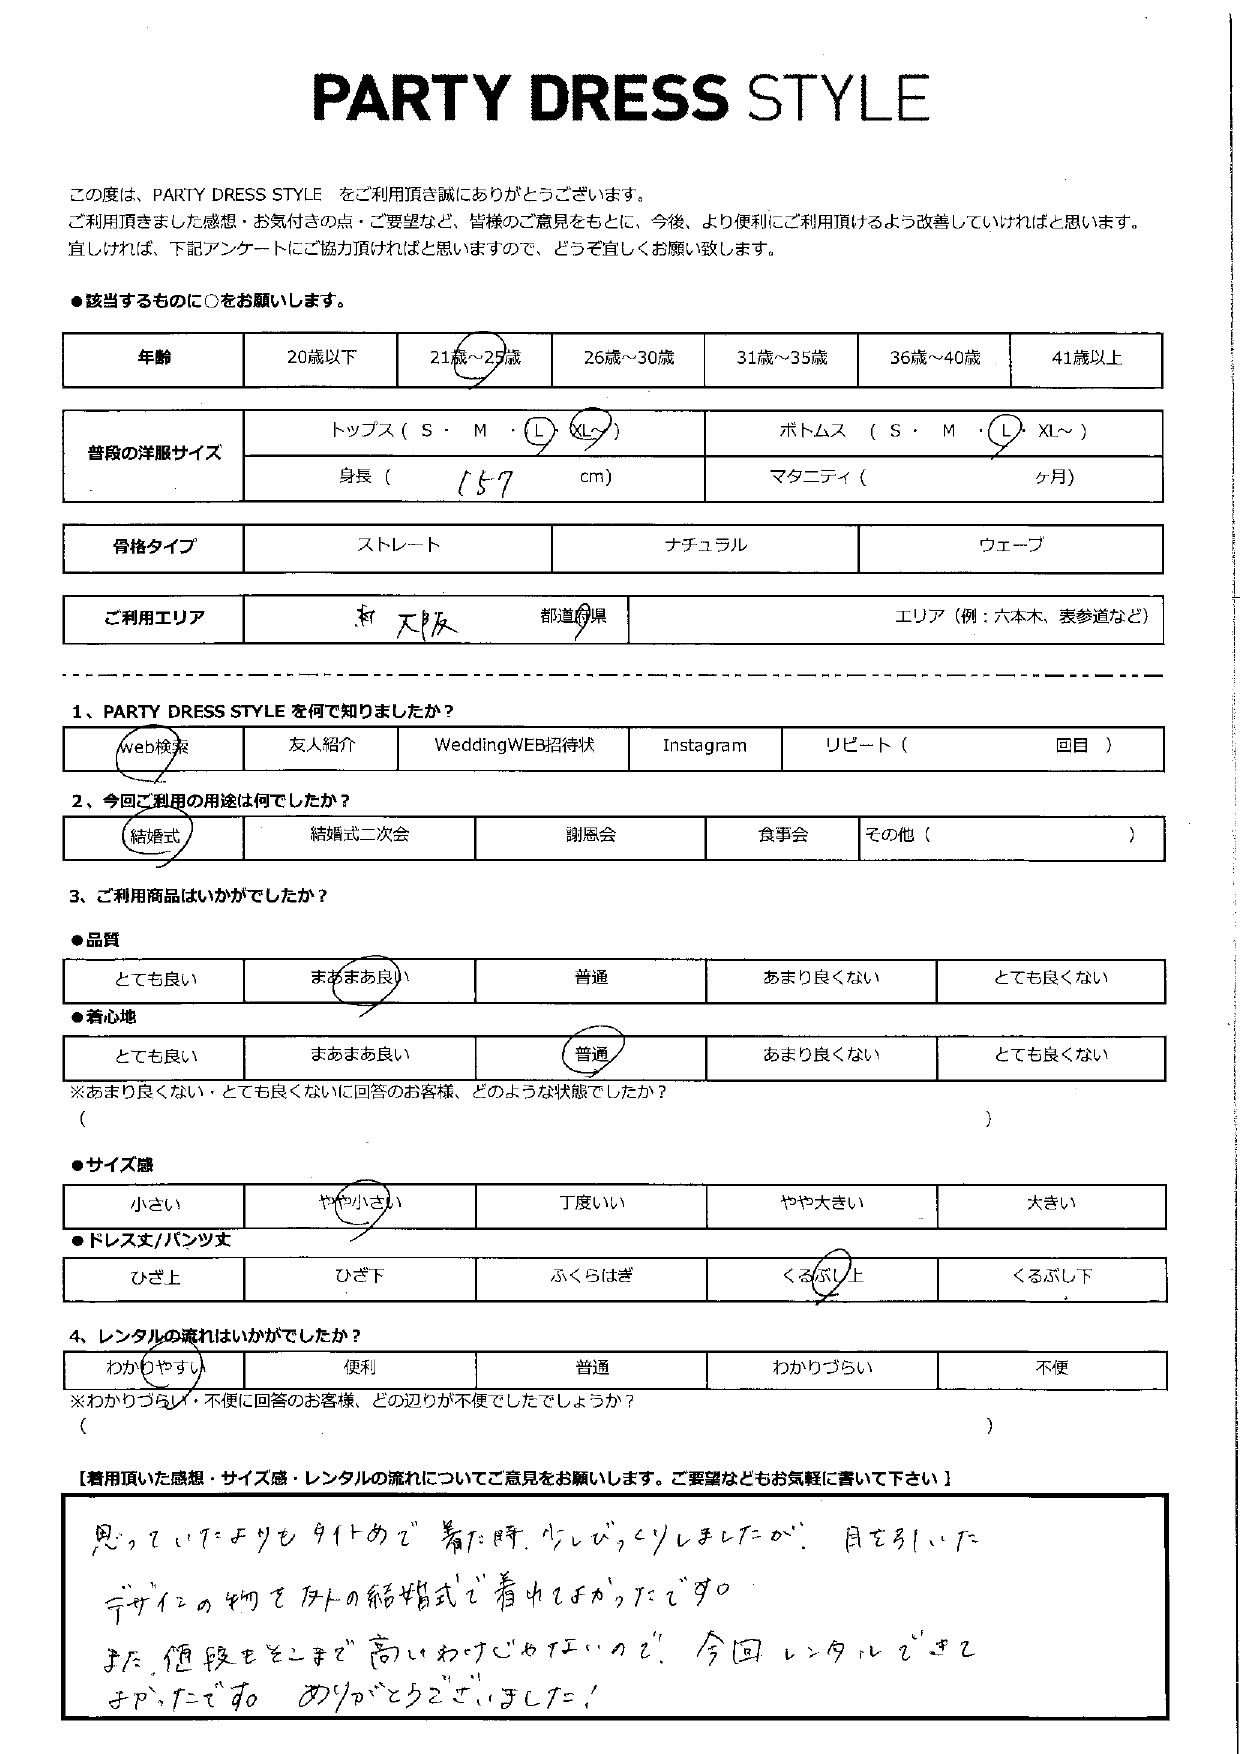 PARTY DRESS STYLE
この度は、PARTY DRESS STYLE をご利用頂き誠にありがとうございます。
ご利用頂きました感想・お気付きの点・ご要望など、皆様のご意見をもとに、今後、より便利にご利用頂けるよう改善していければと思います。
宜しければ、下記アンケートにご協力頂ければと思いますので、どうぞ宜しくお願い致します。
●該当するものに○をお願いします。
年齢 20歳以下 21歳～25歳 26歳～30歳 31歳～35歳 36歳～40歳 41歳以上
普段の洋服サイズ トップス ( S ・ M ・ L ・ XL～ ) ボトムス ( S ・ M ・ L ・ XL～ )
身長 ( 157 cm) マタニティ ( ヶ月)
骨格タイプ ストレート ナチュラル ウェーブ
ご利用エリア 大阪 都道府県 エリア（例：六本木、表参道など）
1、PARTY DRESS STYLE を何で知りましたか？
web検索 友人紹介 WeddingWEB招待状 Instagram リピート ( 回目 )
2、今回ご利用の用途は何でしたか？
結婚式 結婚式二次会 謝恩会 食事会 その他 ( )
3、ご利用商品はいかがでしたか？
●品質
とても良い まあまあ良い 普通 あまり良くない とても良くない
●着心地
とても良い まあまあ良い 普通 あまり良くない とても良くない
※あまり良くない・とても良くないに回答のお客様、どのような状態でしたか？
( )
●サイズ感
小さい やや小さい 丁度いい やや大きい 大きい
●ドレス丈/パンツ丈
ひざ上 ひざ下 ふくらはぎ くるぶし上 くるぶし下
4、レンタルの流れはいかがでしたか？
わかりやすい 便利 普通 わかりづらい 不便
※わかりづらい・不便に回答のお客様、どの辺りが不便でしたでしょうか？
( )
【着用頂いた感想・サイズ感・レンタルの流れについてご意見をお願いします。ご要望などもお気軽に書いて下さい】
思っていたよりもタイトめで着た時、少しびっくりしましたが、目を引いた
デザインの物を友人の結婚式で着れてよかったです。
また、値段もそこまで高いわけじゃないので、今回レンタルできて
よかったです。ありがとうございました！